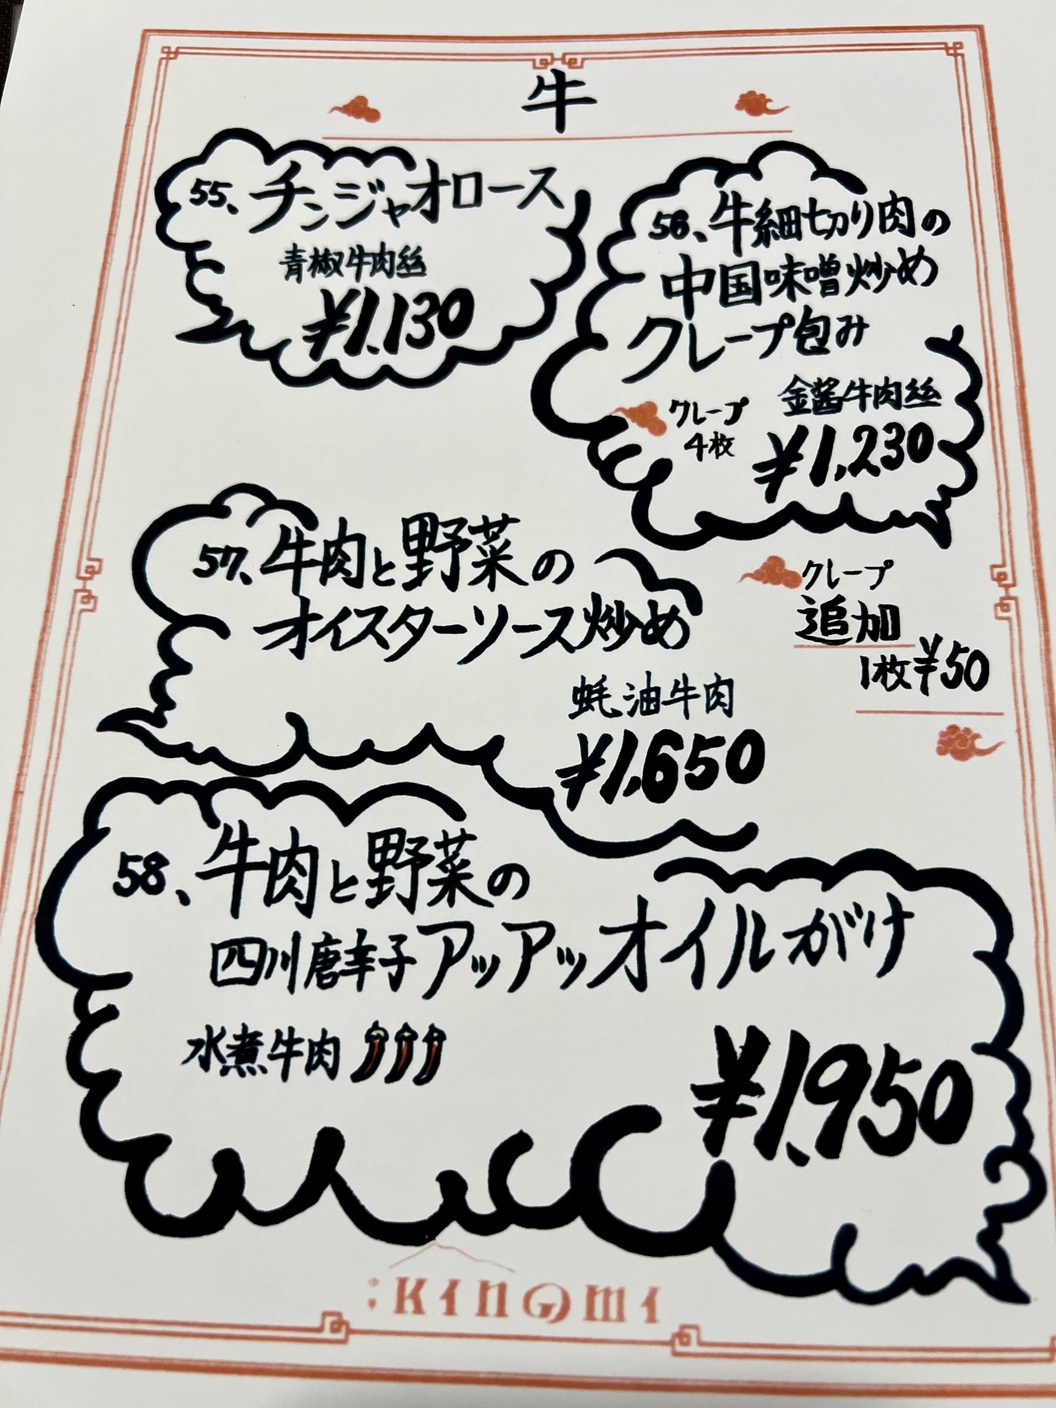 牛
55、チンジャオロース
青椒牛肉絲
¥1,130
56、牛細切り肉の
中国味噌炒め
クレープ包み
金醤牛肉絲
クレープ
4枚
¥1,230
クレープ
追加
1枚¥50
57、牛肉と野菜の
オイスターソース炒め
蚝油牛肉
¥1,650
58、牛肉と野菜の
四川唐辛子アッアッオイルがけ
水煮牛肉
¥1,950
KINOMI